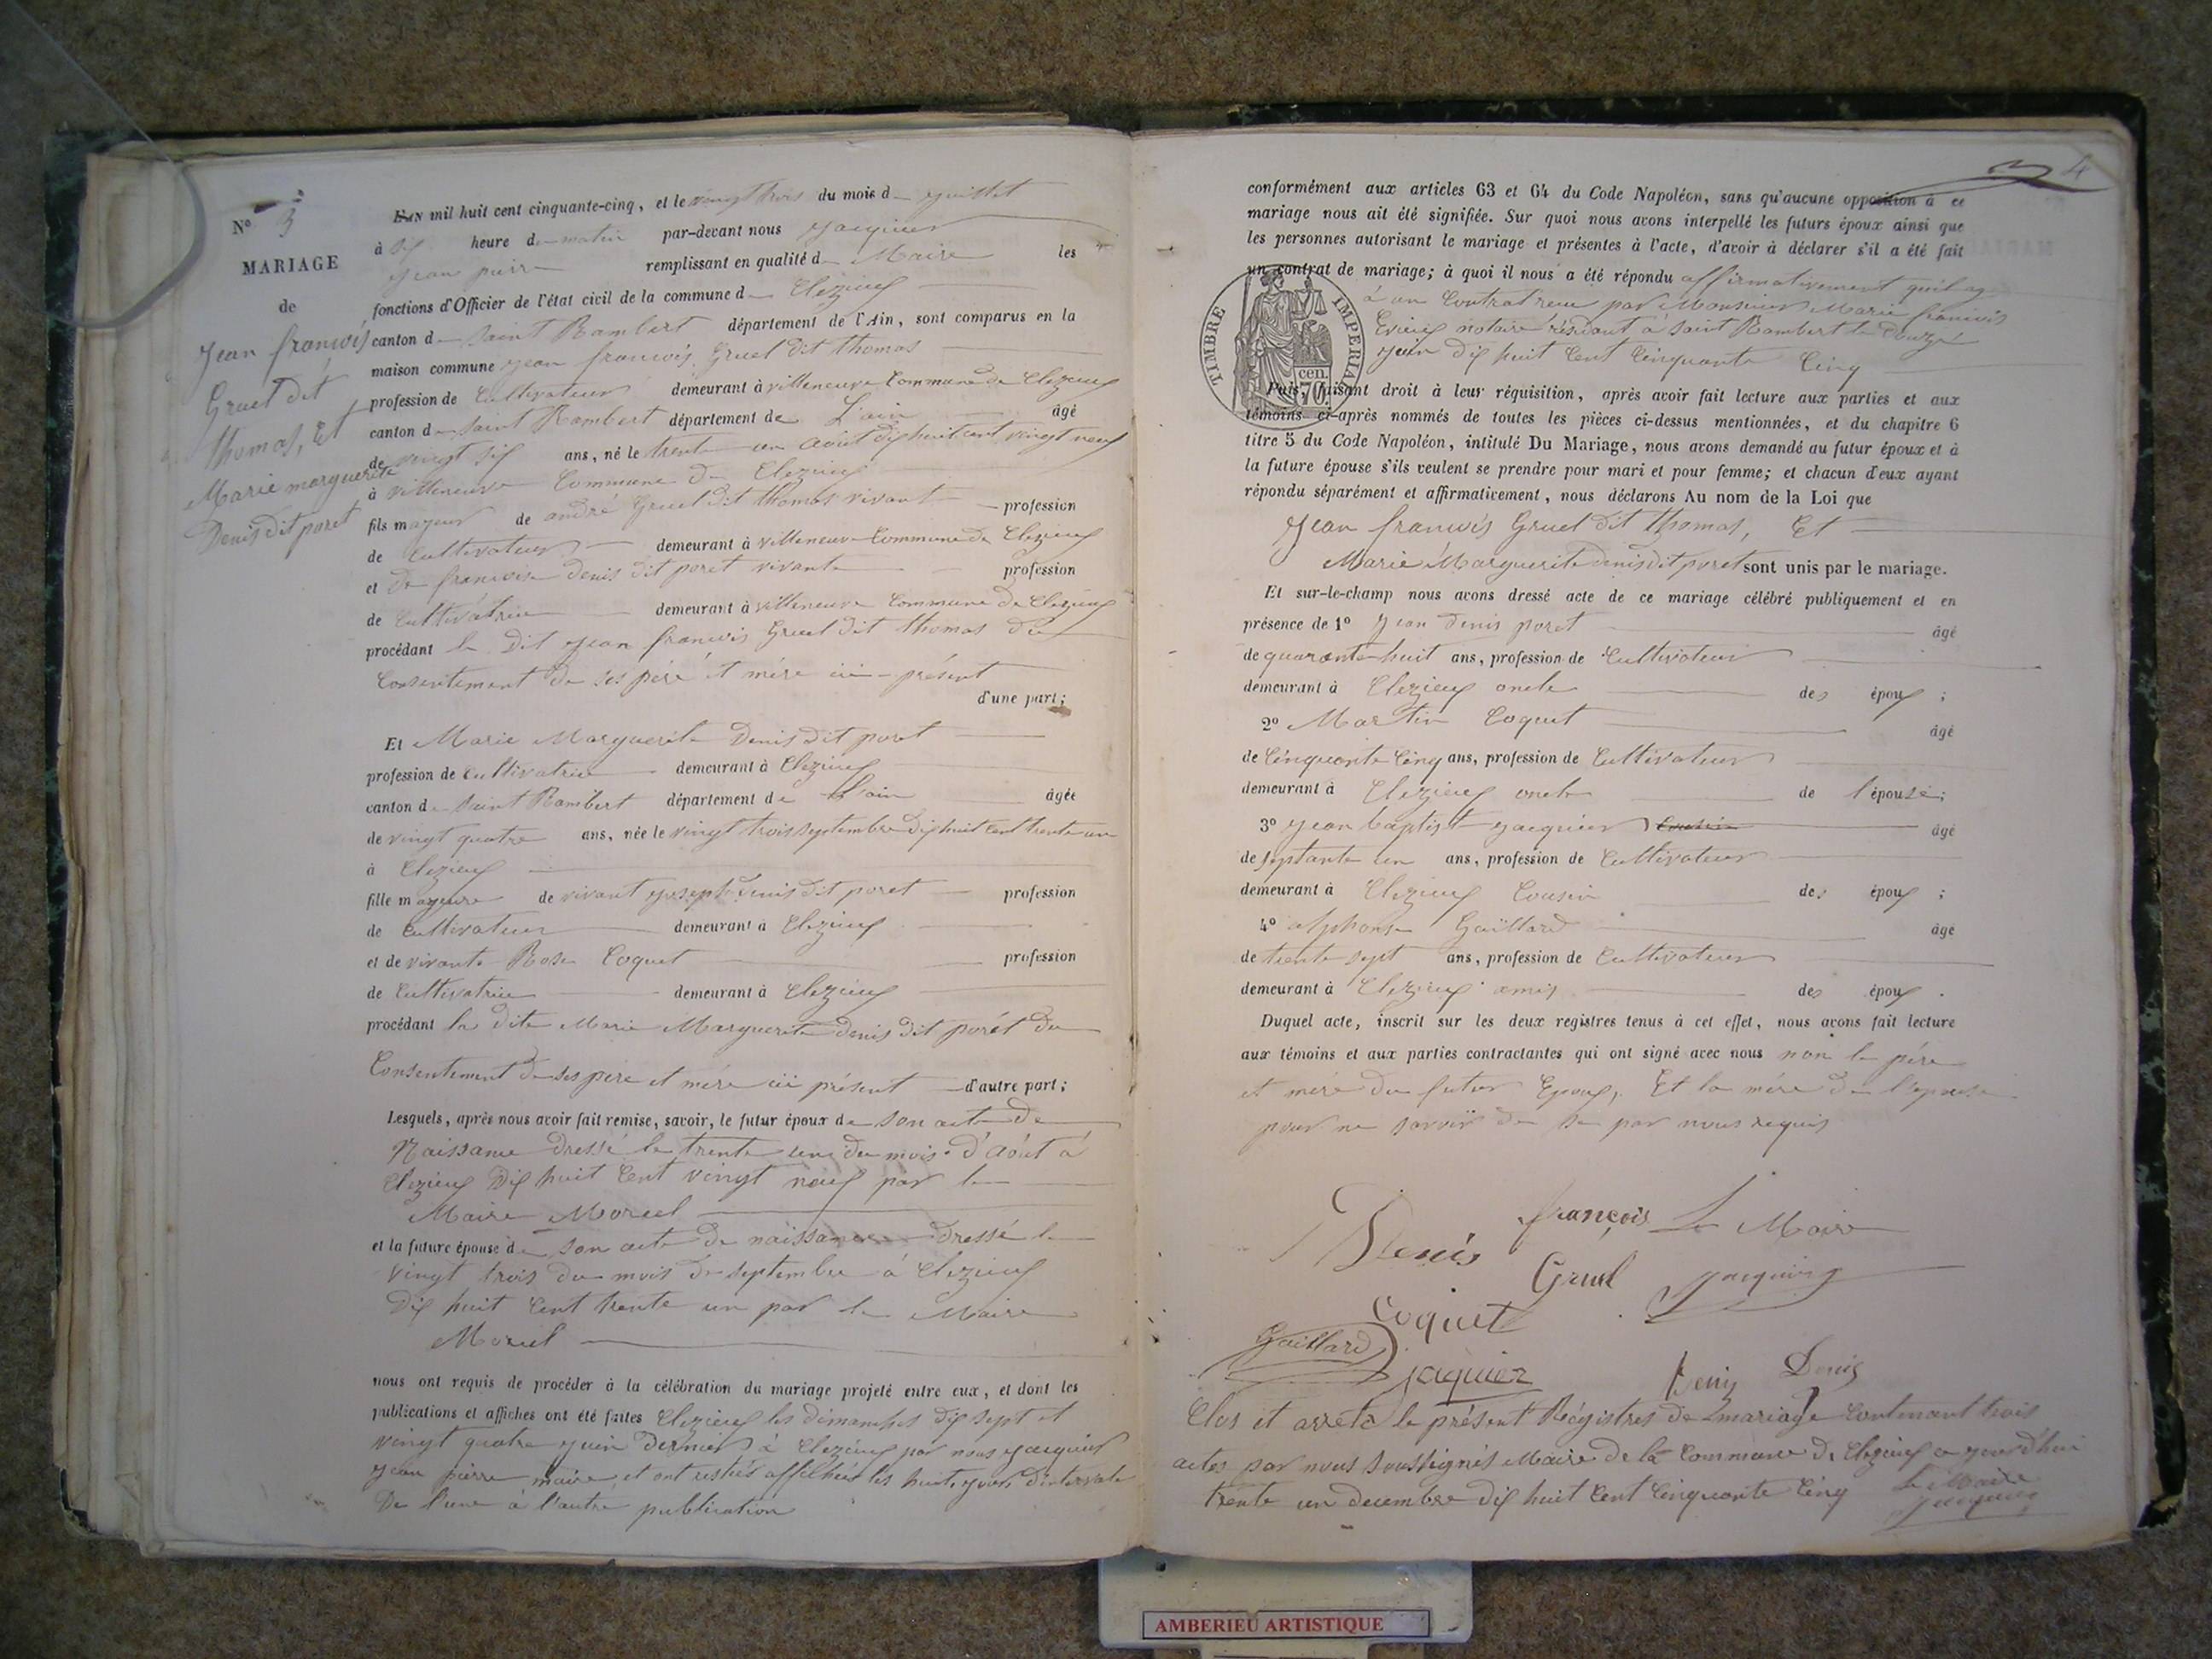 N° 3
MARIAGE
de
Jean francois
Gruel dit
thomas, Et
Marie marguerite
Denis dit poret
L'AN mil huit cent cinquante-cinq, et le vingt trois du mois de juillet
à dix heure du matin par-devant nous Jacquier
Jean pierre remplissant en qualité de Maire les
fonctions d'Officier de l'état civil de la commune de Clézieux
canton de Saint Rambert département de l'Ain, sont comparus en la
maison commune Jean francois Gruel dit thomas
profession de Cultivateur demeurant à villeneuve Commune de Clezieux
canton de saint Rambert département de L'ain âgé
de vingt six ans, né le trente un aout dix huit cent vingt neuf
à villeneuve Commune de Clezieux
fils majeur de andré Gruel dit thomas vivant profession
de Cultivateur demeurant à villeneuve Commune de Clezieux
et de francoise Denis dit poret vivante profession
de Cultivatrice demeurant à villeneuve Commune de Clezieux
procédant le dit Jean francois Gruel dit thomas du
Consentement de ses pére et mére ici présent
d'une part;
Et Marie Marguerite Denis dit poret
profession de Cultivatrice demeurant à Clezieux
canton de Saint Rambert département de L'ain âgée
de vingt quatre ans, née le vingt trois septembre dix huit cent trente un
à Clezieux
fille majeure de vivant joseph Denis dit poret profession
de Cultivateur demeurant à Clezieux
et de vivante Rose Coquet profession
de Cultivatrice demeurant à Clezieux
procédant la dite Marie Marguerite denis dit porét du
Consentement de ses pere et mére ici présent d'autre part;
Lesquels, après nous avoir fait remise, savoir, le futur époux de son acte de
Naissance dressé le trente un du mois d'août à
Clezieux dix huit Cent vingt neuf par le
Maire Morel
et la future épouse de son acte de naissance dressé le
vingt trois du mois de septembre à Clezieux
dix huit Cent trente un par le Maire
Morel
nous ont requis de procéder à la célébration du mariage projeté entre eux, et dont les
publications et affiches ont été faites Clezieux les dimanches dix sept et
vingt quatre juin dernier à Clezieux par nous Jacquier
Jean pierre maire et ont restées affichées les huit jours d'intervale
De l'une à l'autre publication
4
conformément aux articles 63 et 64 du Code Napoléon, sans qu'aucune opposition à ce
mariage nous ait été signifiée. Sur quoi nous avons interpellé les futurs époux ainsi que
les personnes autorisant le mariage et présentes à l'acte, d'avoir à déclarer s'il a été fait
un contrat de mariage; à quoi il nous a été répondu affirmativement qu'il y
à un Contrat recu par Monsieur Marie francois
notaire résidant à Saint Rambert le Douze
juin dix huit Cent Cinquante Cinq
TIMBRE IMPERIAL
70 cen.
Puis, faisant droit à leur réquisition, après avoir fait lecture aux parties et aux
témoins ci-après nommés de toutes les pièces ci-dessus mentionnées, et du chapitre 6
titre 5 du Code Napoléon, intitulé Du Mariage, nous avons demandé au futur époux et à
la future épouse s'ils veulent se prendre pour mari et pour femme; et chacun d'eux ayant
répondu séparément et affirmativement, nous déclarons Au nom de la Loi que
Jean francois Gruel dit thomas, Et
Marie Marguerite denis dit poret sont unis par le mariage.
Et sur-le-champ nous avons dressé acte de ce mariage célébré publiquement et en
présence de 1° Jean Denis poret âgé
de quarante huit ans, profession de Cultivateur
demeurant à Clezieux oncle des époux;
2° Martin Coquet âgé
de Cinquante Cinq ans, profession de Cultivateur
demeurant à Clezieux oncle de l'épouse;
3° Jean baptist Jacquier Cousin âgé
de septante un ans, profession de Cultivateur
demeurant à Clezieux Cousin des époux;
4° alphonse Gaillard âgé
de trente sept ans, profession de Cultivateur
demeurant à Clezieux amis des époux.
Duquel acte, inscrit sur les deux registres tenus à cet effet, nous avons fait lecture
aux témoins et aux parties contractantes qui ont signé avec nous non le pére
et mére du futur Epoux, Et la mére de l'épouse
pour ne savoir de se par nous requis
Denis françois Le Maire
Gruel Jacquier
Coquet
Gaillard
jaquier Deniz Denis
Clos et arreté le présent Régistres de mariage Contenant trois
actes par nous soussignés Maire de la Commune de Clezieux a jourd'hui
trente un decembre dix huit Cent Cinquante Cinq Le Maire
Jacquier
AMBERIEU ARTISTIQUE